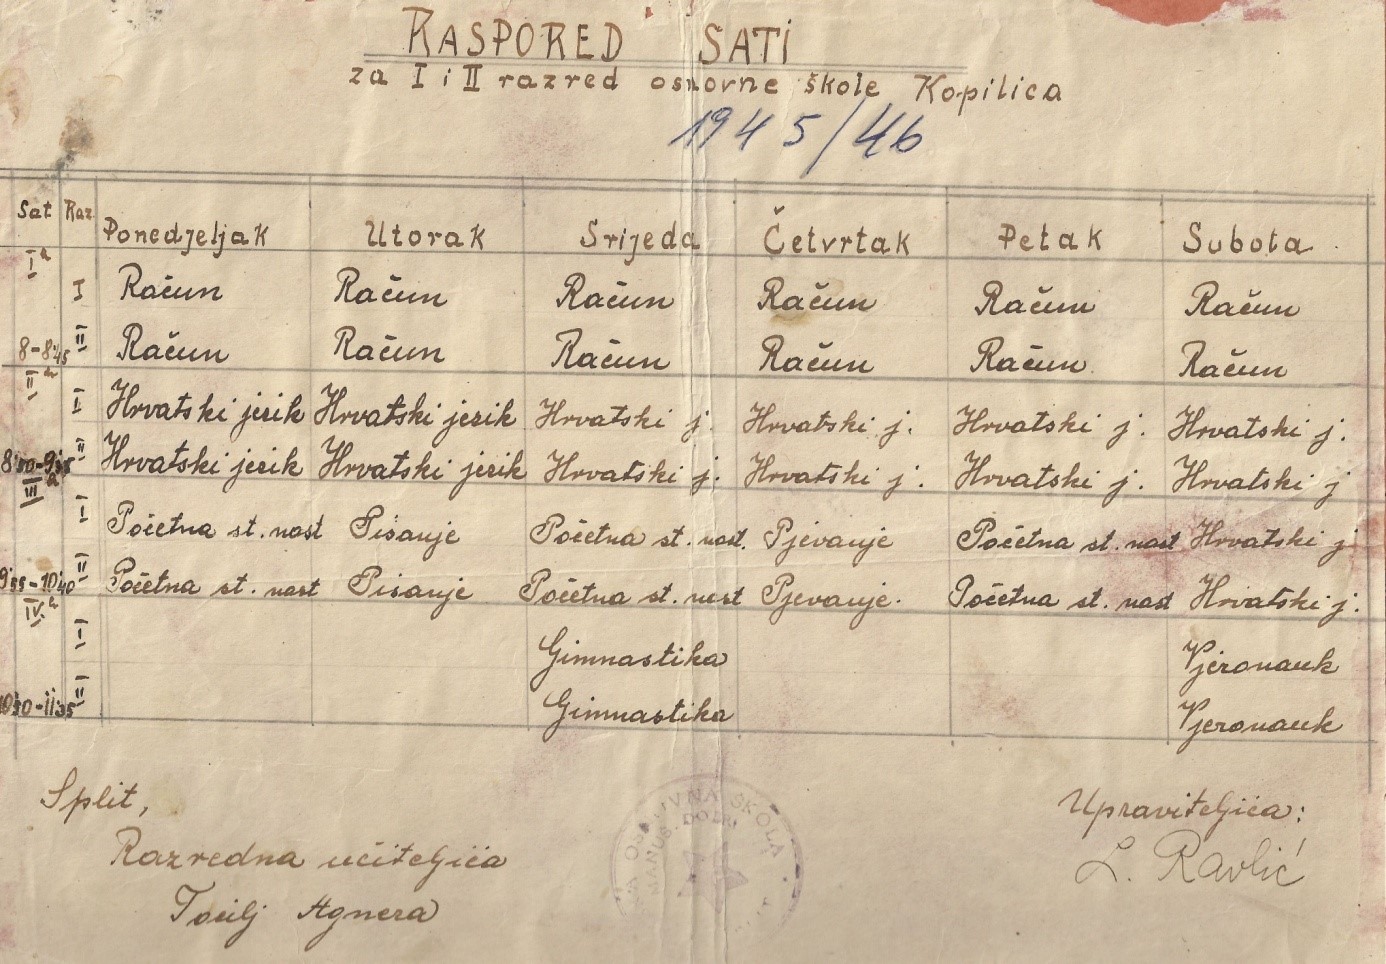 RASPORED SATI
za I i II razred osnovne škole Kopilica
1945/46
Sat Raz. Ponedjeljak Utorak Srijeda Četvrtak Petak Subota
I a
I Račun Račun Račun Račun Račun Račun
8-8:45 II Račun Račun Račun Račun Račun Račun
II a
I Hrvatski jezik Hrvatski jezik Hrvatski j. Hrvatski j. Hrvatski j. Hrvatski j.
II Hrvatski jezik Hrvatski jezik Hrvatski j. Hrvatski j. Hrvatski j. Hrvatski j
III a
I Početna st. nast Pisanje Početna st. nast. Pjevanje Početna st. nast Hrvatski j
9:55-10:40 II Početna st. nast Pisanje Početna st. nast Pjevanje. Početna st. nast Hrvatski j.
IV. a
I Gimnastika Vjeronauk
II Gimnastika Vjeronauk
Split,
Razredna učiteljica
Agneza
Upraviteljica:
L. Ravlić
ŠKOLA